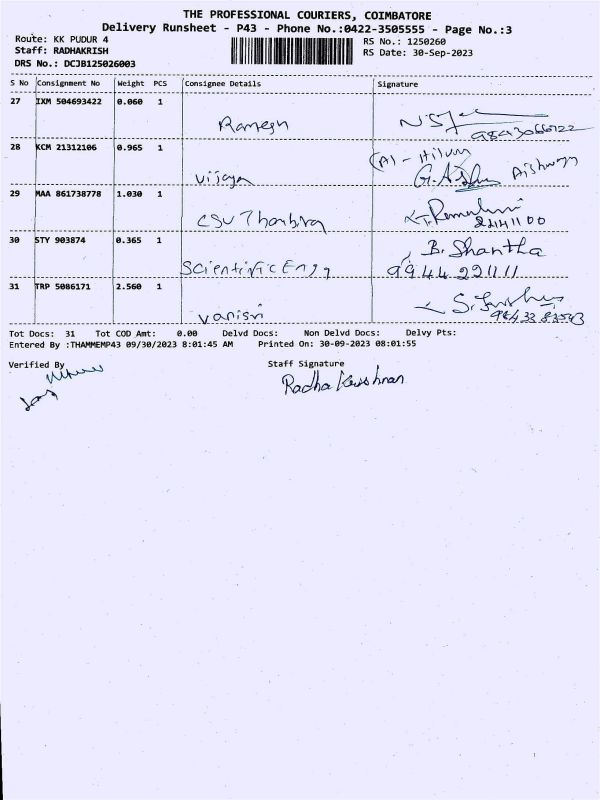 THE PROFESSIONAL COURIERS, COIMBATORE
Delivery Runsheet - P43 - Phone No.:0422-3505555 - Page No.:3
Route: KK PUDUR 4 RS No.: 1250260
Staff: RADHAKRISH RS Date: 30-Sep-2023
DRS No.: DCJB125026003
S No Consignment No Weight PCS Consignee Details Signature
27 IXM 504693422 0.060 1
Ramesh
28 KCM 21312106 0.965 1
Vijaya Aishwarya
29 MAA 861738778 1.030 1
CSU
2441100
30 STY 903874 0.365 1 B. Shantha
Scientific Engg 9944229111
31 TRP 5086171 2.560 1
Vanisri
Tot Docs: 31 Tot COD Amt: 0.00 Delvd Docs: Non Delvd Docs: Delvy Pts:
Entered By :THAMMEMP43 09/30/2023 8:01:45 AM Printed On: 30-09-2023 08:01:55
Verified By Staff Signature
Radha Krishnan